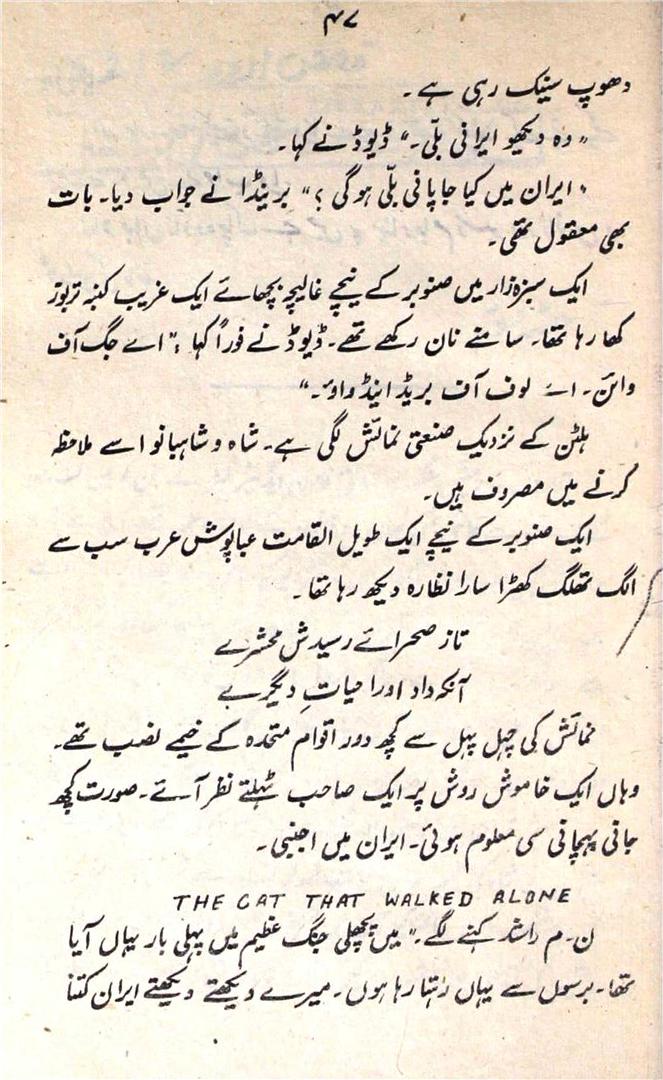 ۴۷
دھوپ سینک رہی ہے ۔
"وہ دیکھو ایرانی بلّی۔" ڈیوڈ نے کہا۔
"ایران میں کیا جاپانی بلّی ہوگی؟" برینڈا نے جواب دیا۔ بات
بھی معقول تھی۔
ایک سبزہ زار میں صنوبر کے نیچے غالیچہ بچھائے ایک غریب کنبہ تربوز
کھا رہا تھا۔ سامنے نان رکھے تھے۔ ڈیوڈ نے فوراً کہا: "اے جگ آف
وائن۔ اے لوف آف بریڈ اینڈ داؤ۔"
ہلٹن کے نزدیک صنعتی نمائش لگی ہے۔ شاہ و شاہبانو اسے ملاحظہ
کرنے میں مصروف ہیں۔
ایک صنوبر کے نیچے ایک طویل القامت عباپوش عرب سب سے
الگ تھلگ کھڑا سارا نظارہ دیکھ رہا تھا۔
تاز صحرائے رسیدش محشرے
آنکہ داد اورا حیاتِ دیگرے
نمائش کی چہل پہل سے کچھ دور اقوام متحدہ کے خیمے نصب تھے۔
وہاں ایک خاموش روش پر ایک صاحب ٹہلتے نظر آئے۔ صورت کچھ
جانی پہچانی سی معلوم ہوئی۔ ایران میں اجنبی۔
THE CAT THAT WALKED ALONE
ن۔م راشد کہنے لگے۔ "میں پچھلی جنگ عظیم میں پہلی بار یہاں آیا
تھا۔ برسوں سے یہاں رہتا رہا ہوں۔ میرے دیکھتے دیکھتے ایران کتنا